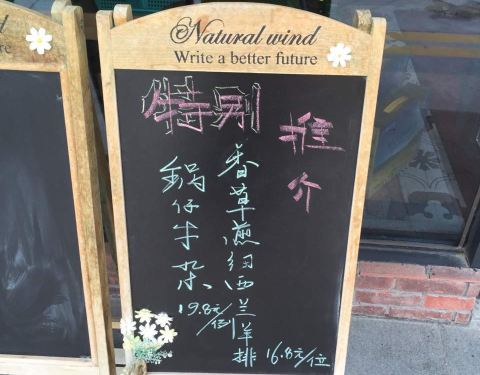 Natural wind
Write a better future
特别
推介
香草煎纽西兰羊排 16.8元/位
鍋仔牛杂 19.8元/例